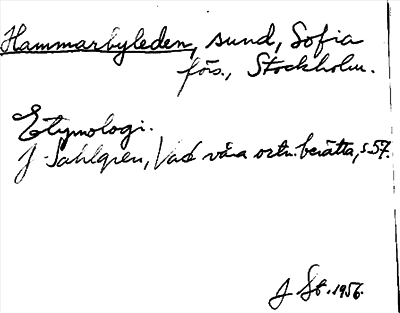 Hammarbyleden, sund, Sofia
förs., Stockholm.
Etymologi.
J Sahlgren, Vad våra ortn. berätta, s. 57.
J St. 1956.